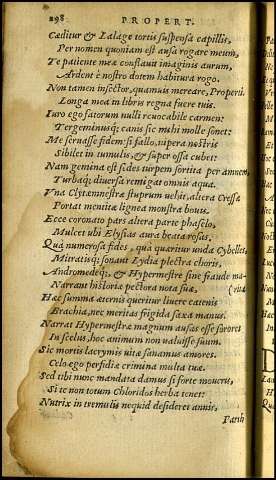 298. PROPERT.
Cæditur & Lalage tortis suspensa capillis,
Per nomen quoniam est ausa rogare meum,
Te patiente meæ conflauit imaginis aurum,
Ardent è nostro dotem habitura rogo.
Non tamen insector, quamuis mereare, Properti.
Longa mea in libris regna fuere tuis.
Iuro ego fatorum nulli reuocabile carmen:
Tergeminusq; canis sic mihi molle sonet:
Me seruasse fidem: si fallo, vipera nostris
Sibilet in tumulis, & super ossa cubet:
Nam gemina est sedes turpem sortita per amnem,
Turbaq; diuersa remigat omnis aqua.
Vna Clytæmnestræ stuprum vehit, altera Cressæ
Portat mentita lignea monstra bouis.
Ecce coronato pars altera parte phaselo,
Mulcet vbi Elysias aura beata rosas.
Qua numerosa fides, qua quæritur vnda Cybelles,
Mitratisq; sonant Lydia plectra choris,
Andromedeq;, & Hypermestre sine fraude ma-
Narrant historiæ pectora nota suæ. (ritæ
Hæc summa æternis queritur liuere catenis
Brachia, nec meritas frigida saxa manus.
Narrat Hypermestre magnum ausas esse sorores
In scelus, hoc animum non valuisse suum.
Sic mortis lacrymis vitæ sanamus amores.
Celo ego perfidiæ crimina multa tuæ.
Sed tibi nunc mandata damus si forte moueris,
Si te non totum Chloridos herba tenet:
Nutrix in tremulis nequid desideret annis,
Parth